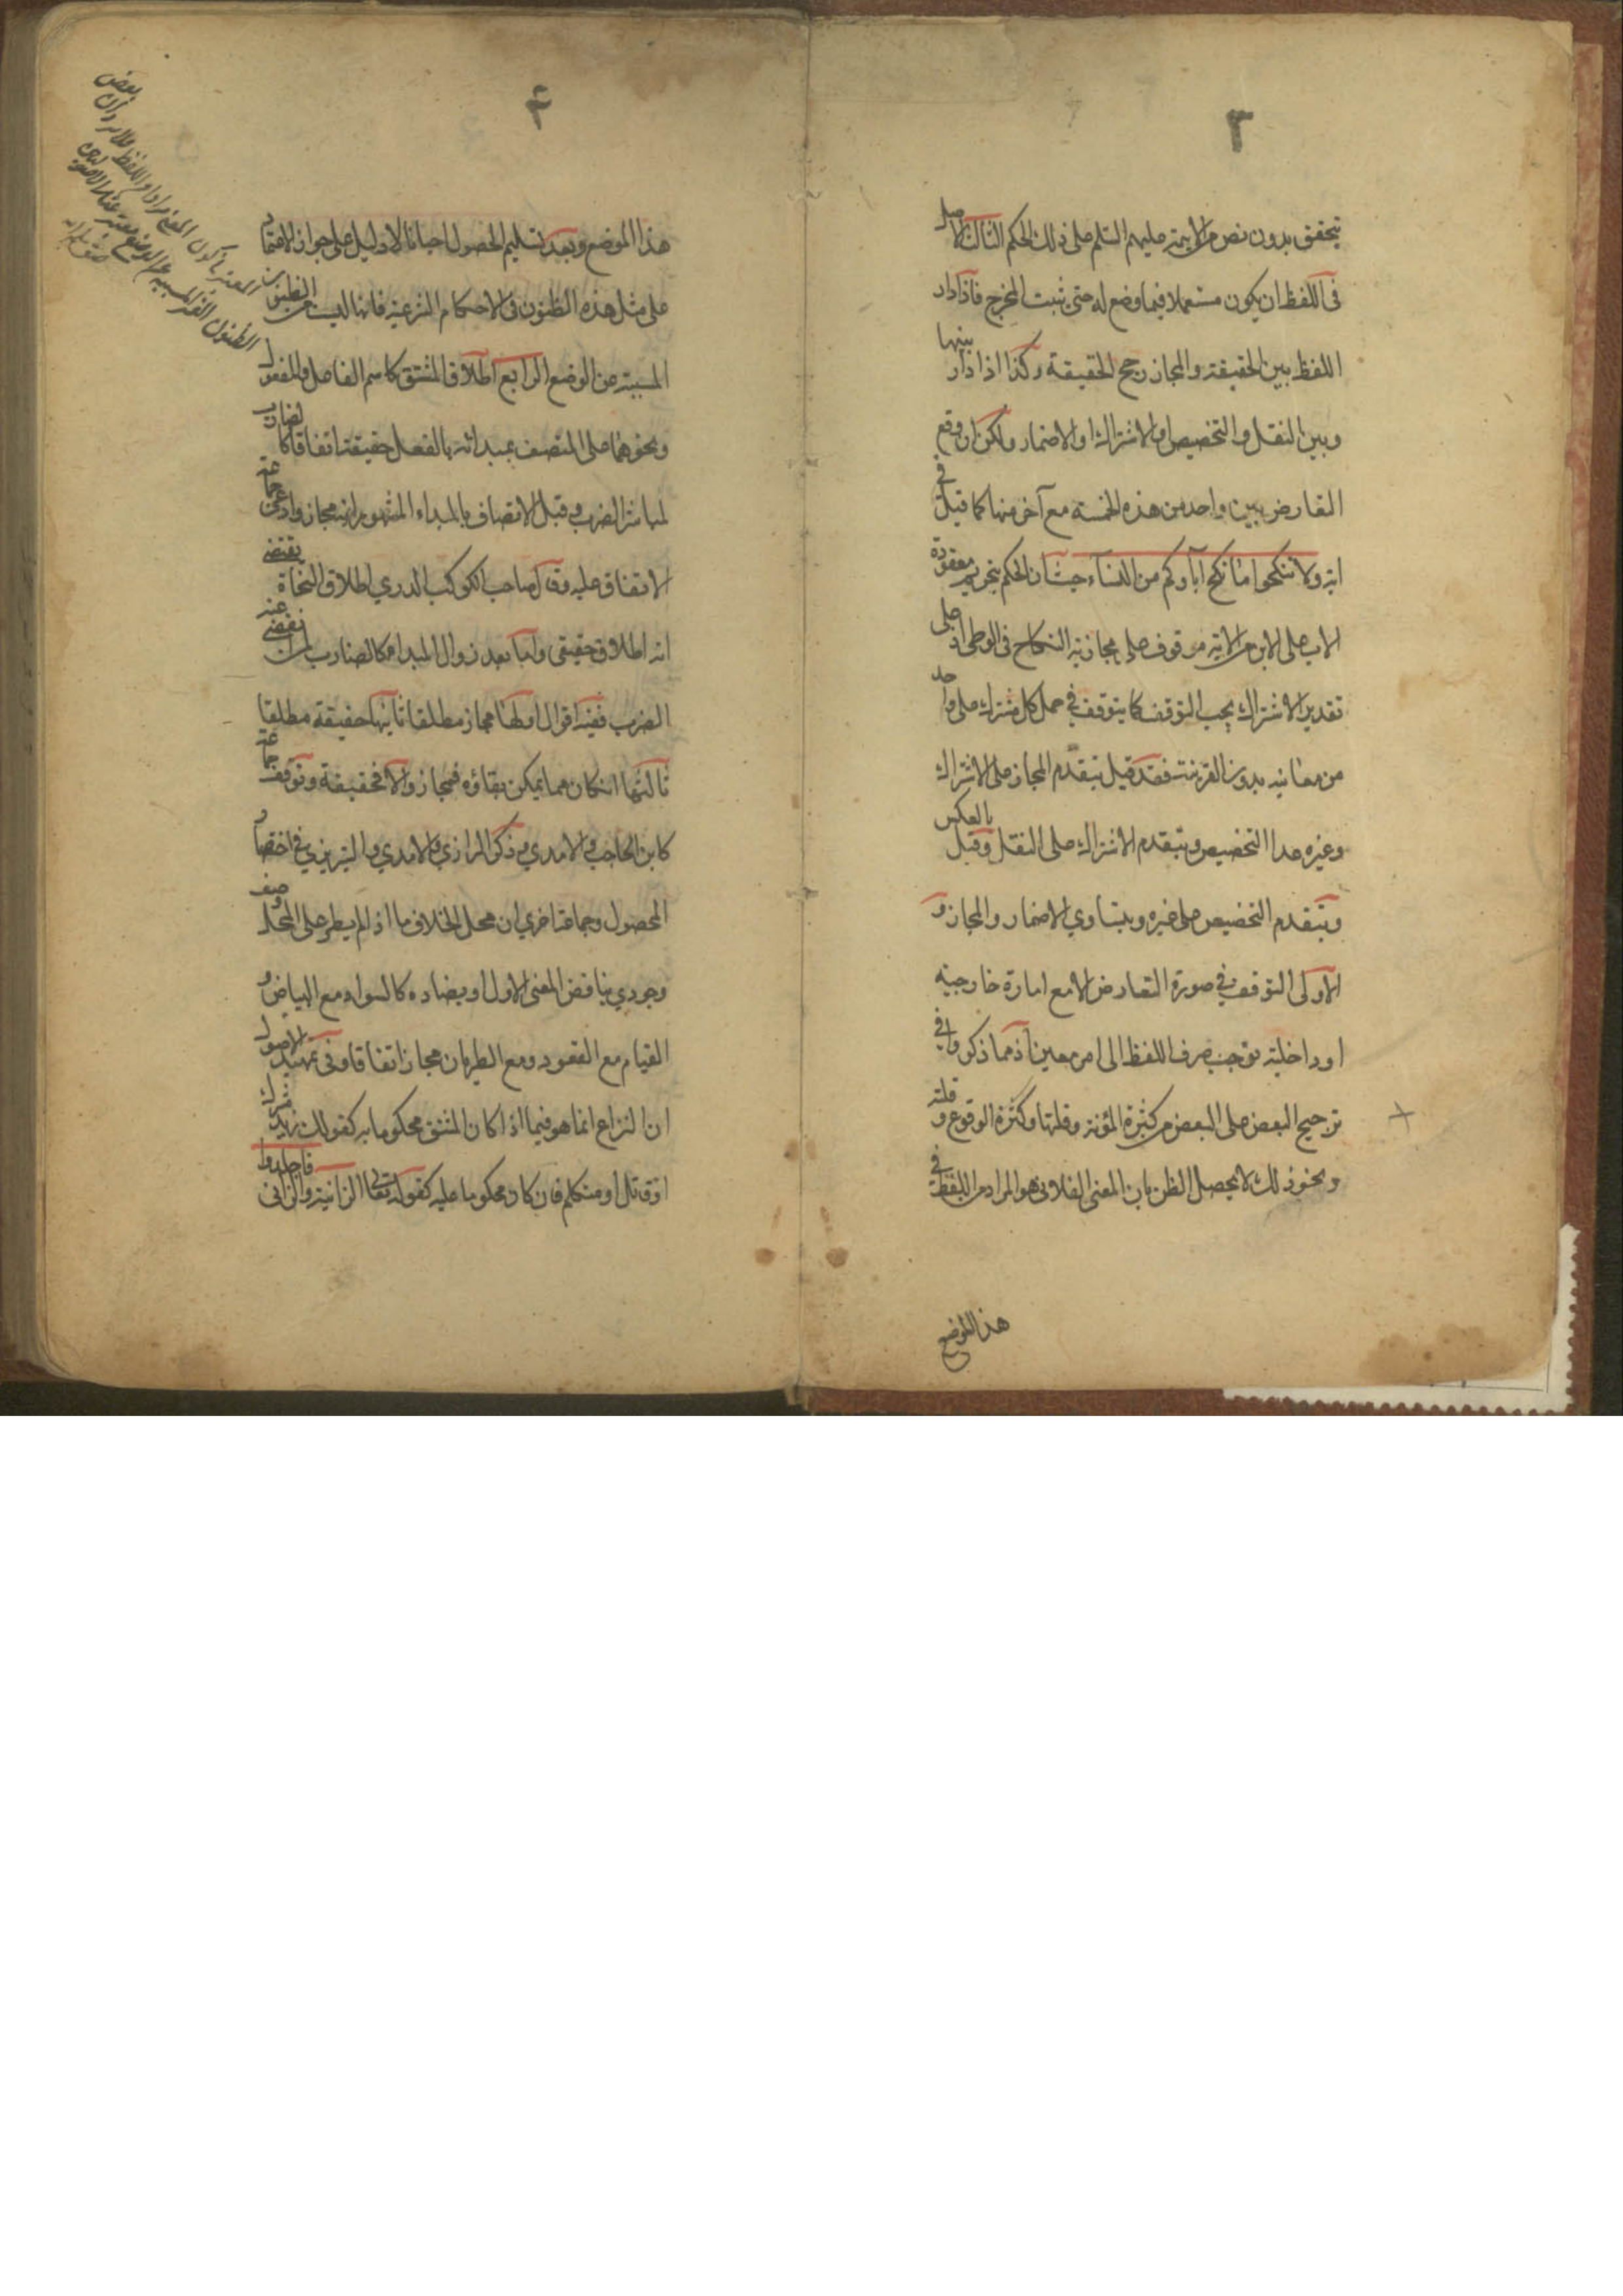 ٣
يتحقق بدون نص من الائمة عليهم السلم على ذلك الحكم الثالث الاصل
فى اللفظ ان يكون مستعملا فيما وضع له حتى يثبت المخرج فاذا دار
اللفظ بين الحقيقة والمجاز رجح الحقيقة وكذا اذا دار بينها
وبين النقل والتخصيص والاشتراك او الاضمار ولكن ان وقع
التعارض بين واحد من هذه الخمسة مع آخر منها كما قيل فى
اية ولا تنكحوا ما نكح آباؤكم من النساء حيث ان الحكم بتحريم معقودة
الاب على الابن من الاية موقوف على مجازية النكاح فى الوطى اذ على
تقدير الاشتراك يجب التوقف كما يتوقف فى حمل كل مشترك على واحد
من معانيه بدون القرينة فقد قيل بتقدم المجاز على الاشتراك
وغيره عدا التخصيص وبتقدم الاشتراك على النقل وقيل بالعكس
وبتقدم التخصيص على غيره وبتساوي الاضمار والمجاز و
الاولى التوقف فى صورة التعارض الا مع امارة خارجية
او داخلية توجب صرف اللفظ الى امر معين اذ مما ذكروا فى
ترجيح البعض على البعض من كثرة المؤنة وقلتها وكثرة الوقوع وقلته
ونحو ذلك لا يحصل الظن بان المعنى الفلانى هو المراد من اللفظ فى
هذا الموضع
٤
هذا الموضع وبعد تسليم الحصول احيانا لا دليل على جواز الاعتماد
على مثل هذه الظنون فى الاحكام الشرعية فانها ليست من الظنون
المسببة عن الوضع الرابع اطلاق المشتق كاسم الفاعل والمفعول
ونحوهما على المتصف بمبدائه بالفعل حقيقة اتفاقا كالضارب
لمباشر الضرب وقبل الاتصاف بالمبداء المشهور انه مجاز وادعى جماعة
الاتفاق عليه وقال صاحب الكوكب الدري اطلاق النحاة يقتضى
انه اطلاق حقيقى واما بعد زوال المبداء كالضارب لمن انقضى عنه
الضرب ففيه اقوال اولها مجاز مطلقا ثانيها حقيقة مطلقا
ثالثها ان كان مما يمكن بقاؤه فمجاز والا فحقيقة وتوقف جماعة
كابن الحاجب والامدي وذكر الرازي والامدي والتبريزي فى اختصار
المحصول وجماعة اخرى ان محل الخلاف ما اذا لم يطر على المحل وصف
وجودي يناقض المعنى الاول او يضاده كالسواد مع البياض و
القيام مع القعود ومع الطريان مجاز اتفاقا وفى تمهيد الاصول
ان النزاع انما هو فيما اذا كان المشتق محكوما به كقولك زيد مشرك
او قاتل او متكلم فان كان محكوما عليه كقوله تعالى الزانية والزانى فاجلدوا